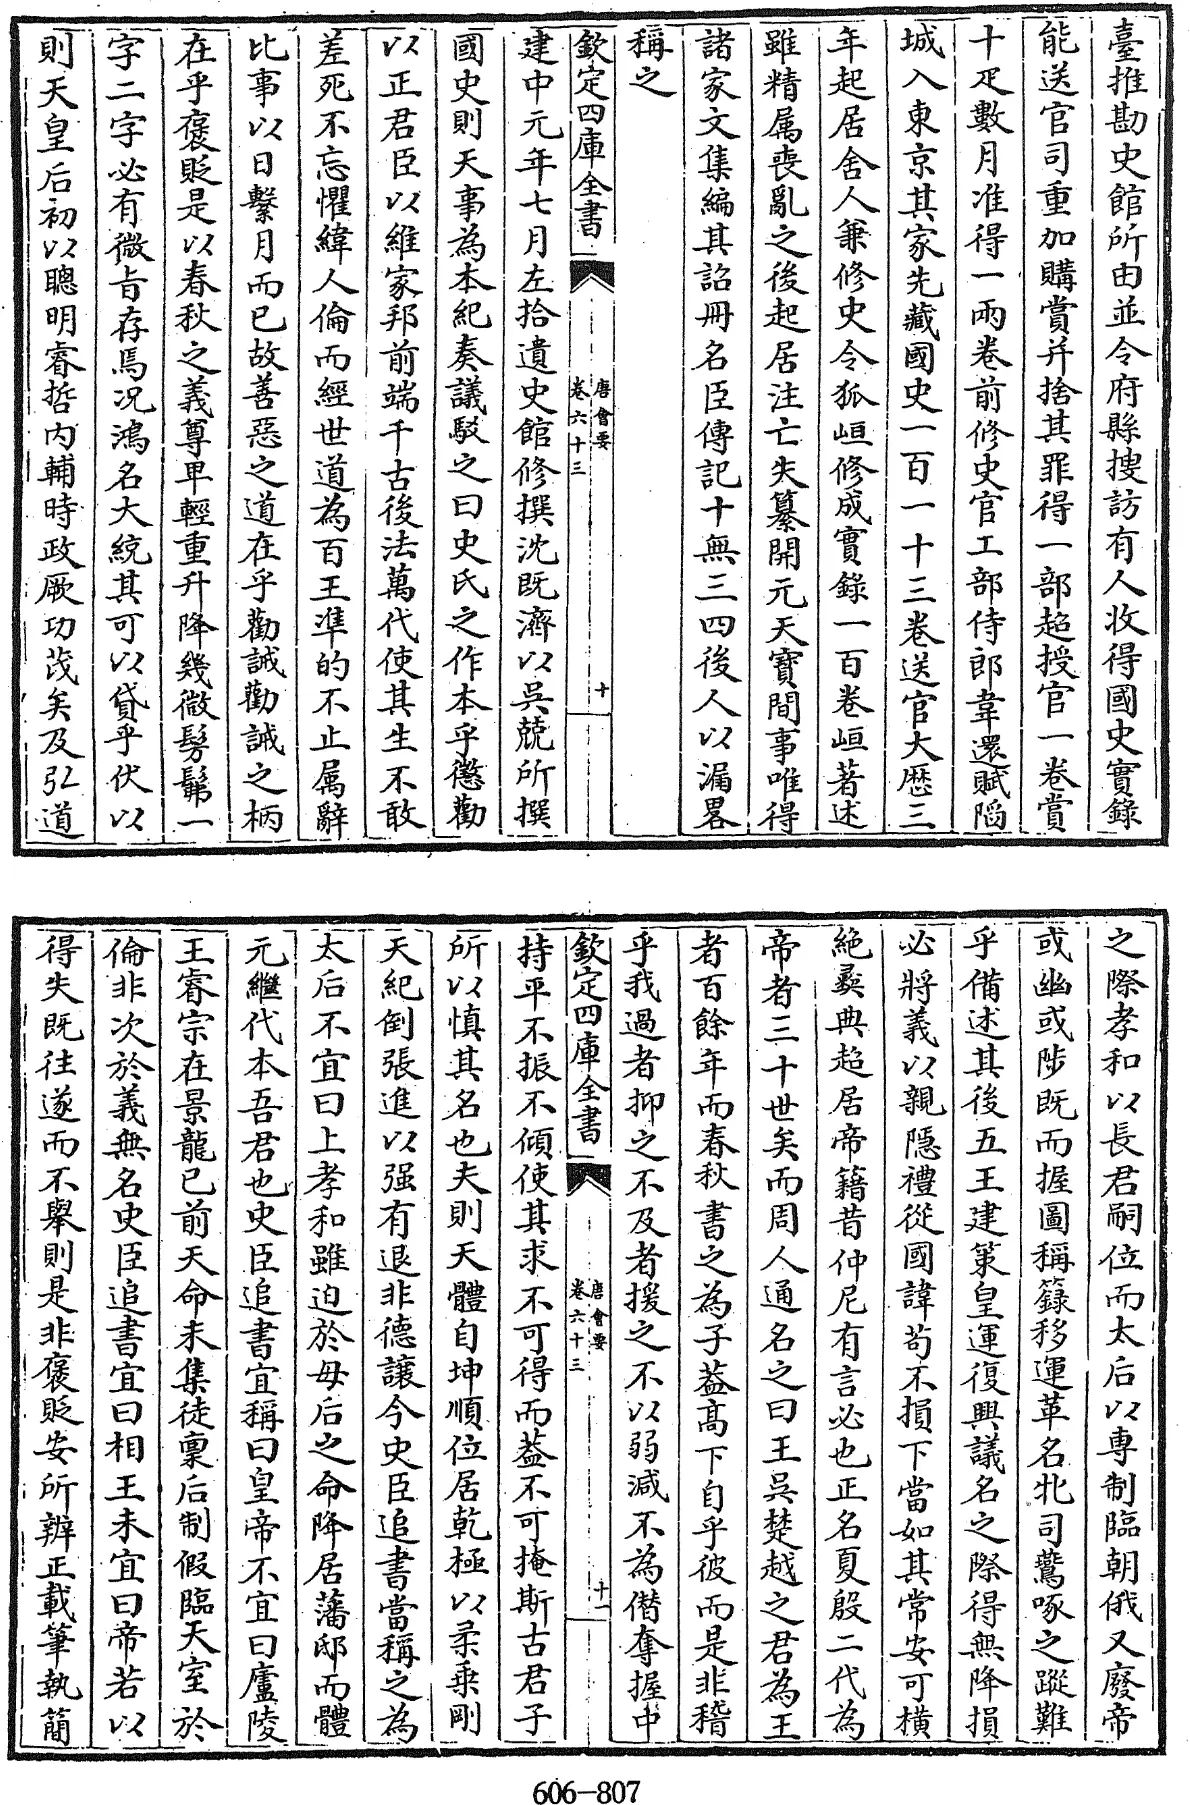 臺推勘史館所由並令府縣搜訪有人收得國史實錄
能送官司重加購賞并捨其罪得一部超授官一卷賞
十疋數月准得一兩卷前修史官工部侍郎韋還賦陷
城入東京其家先藏國史一百一十三卷送官大厯三
年起居舍人兼修史令狐峘修成實錄一百卷峘著述
雖精属喪亂之後起居注亡失纂開元天寶間事唯得
諸家文集編其詔冊名臣傳記十無三四後人以漏畧
稱之
欽定四庫全書
唐會要
卷六十三
十
建中元年七月左拾遺史館修撰沈既濟以吳兢所撰
國史則天事為本紀奏議駁之曰史氏之作本乎懲勸
以正君臣以維家邦前端千古後法萬代使其生不敢
差死不忘懼緯人倫而經世道為百王準的不止属辭
比事以日繫月而已故善惡之道在乎勸誡勸誡之柄
在乎褒貶是以春秋之義尊卑輕重升降幾微髣髴一
字二字必有微旨存焉况鴻名大統其可以貸乎伏以
則天皇后初以聰明睿哲内輔時政厥功茂矣及弘道
之際孝和以長君嗣位而太后以専制臨朝俄又廢帝
或幽或陟既而握圖稱籙移運革名牝司鷰啄之蹤難
乎備述其後五王建策皇運復興議名之際得無降損
必將義以親隱禮從國諱苟不損下當如其常安可横
絶彛典超居帝籍昔仲尼有言必也正名夏殷二代為
帝者三十世矣而周人通名之曰王吳楚越之君為王
者百餘年而春秋書之為子葢髙下自乎彼而是非稽
乎我過者抑之不及者援之不以弱減不為僭奪握中
欽定四庫全書
唐會要
卷六十三
十一
持平不振不傾使其求不可得而葢不可掩斯古君子
所以慎其名也夫則天體自坤順位居乾極以柔乗剛
天紀倒張進以强有退非德讓今史臣追書當稱之為
太后不宜曰上孝和雖迫於母后之命降居藩邸而體
元繼代本吾君也史臣追書宜稱曰皇帝不宜曰廬陵
王睿宗在景龍已前天命未集徒禀后制假臨天室於
倫非次於義無名史臣追書宜曰相王未宜曰帝若以
得失既往遂而不舉則是非褒貶安所辨正載筆執簡
606-807